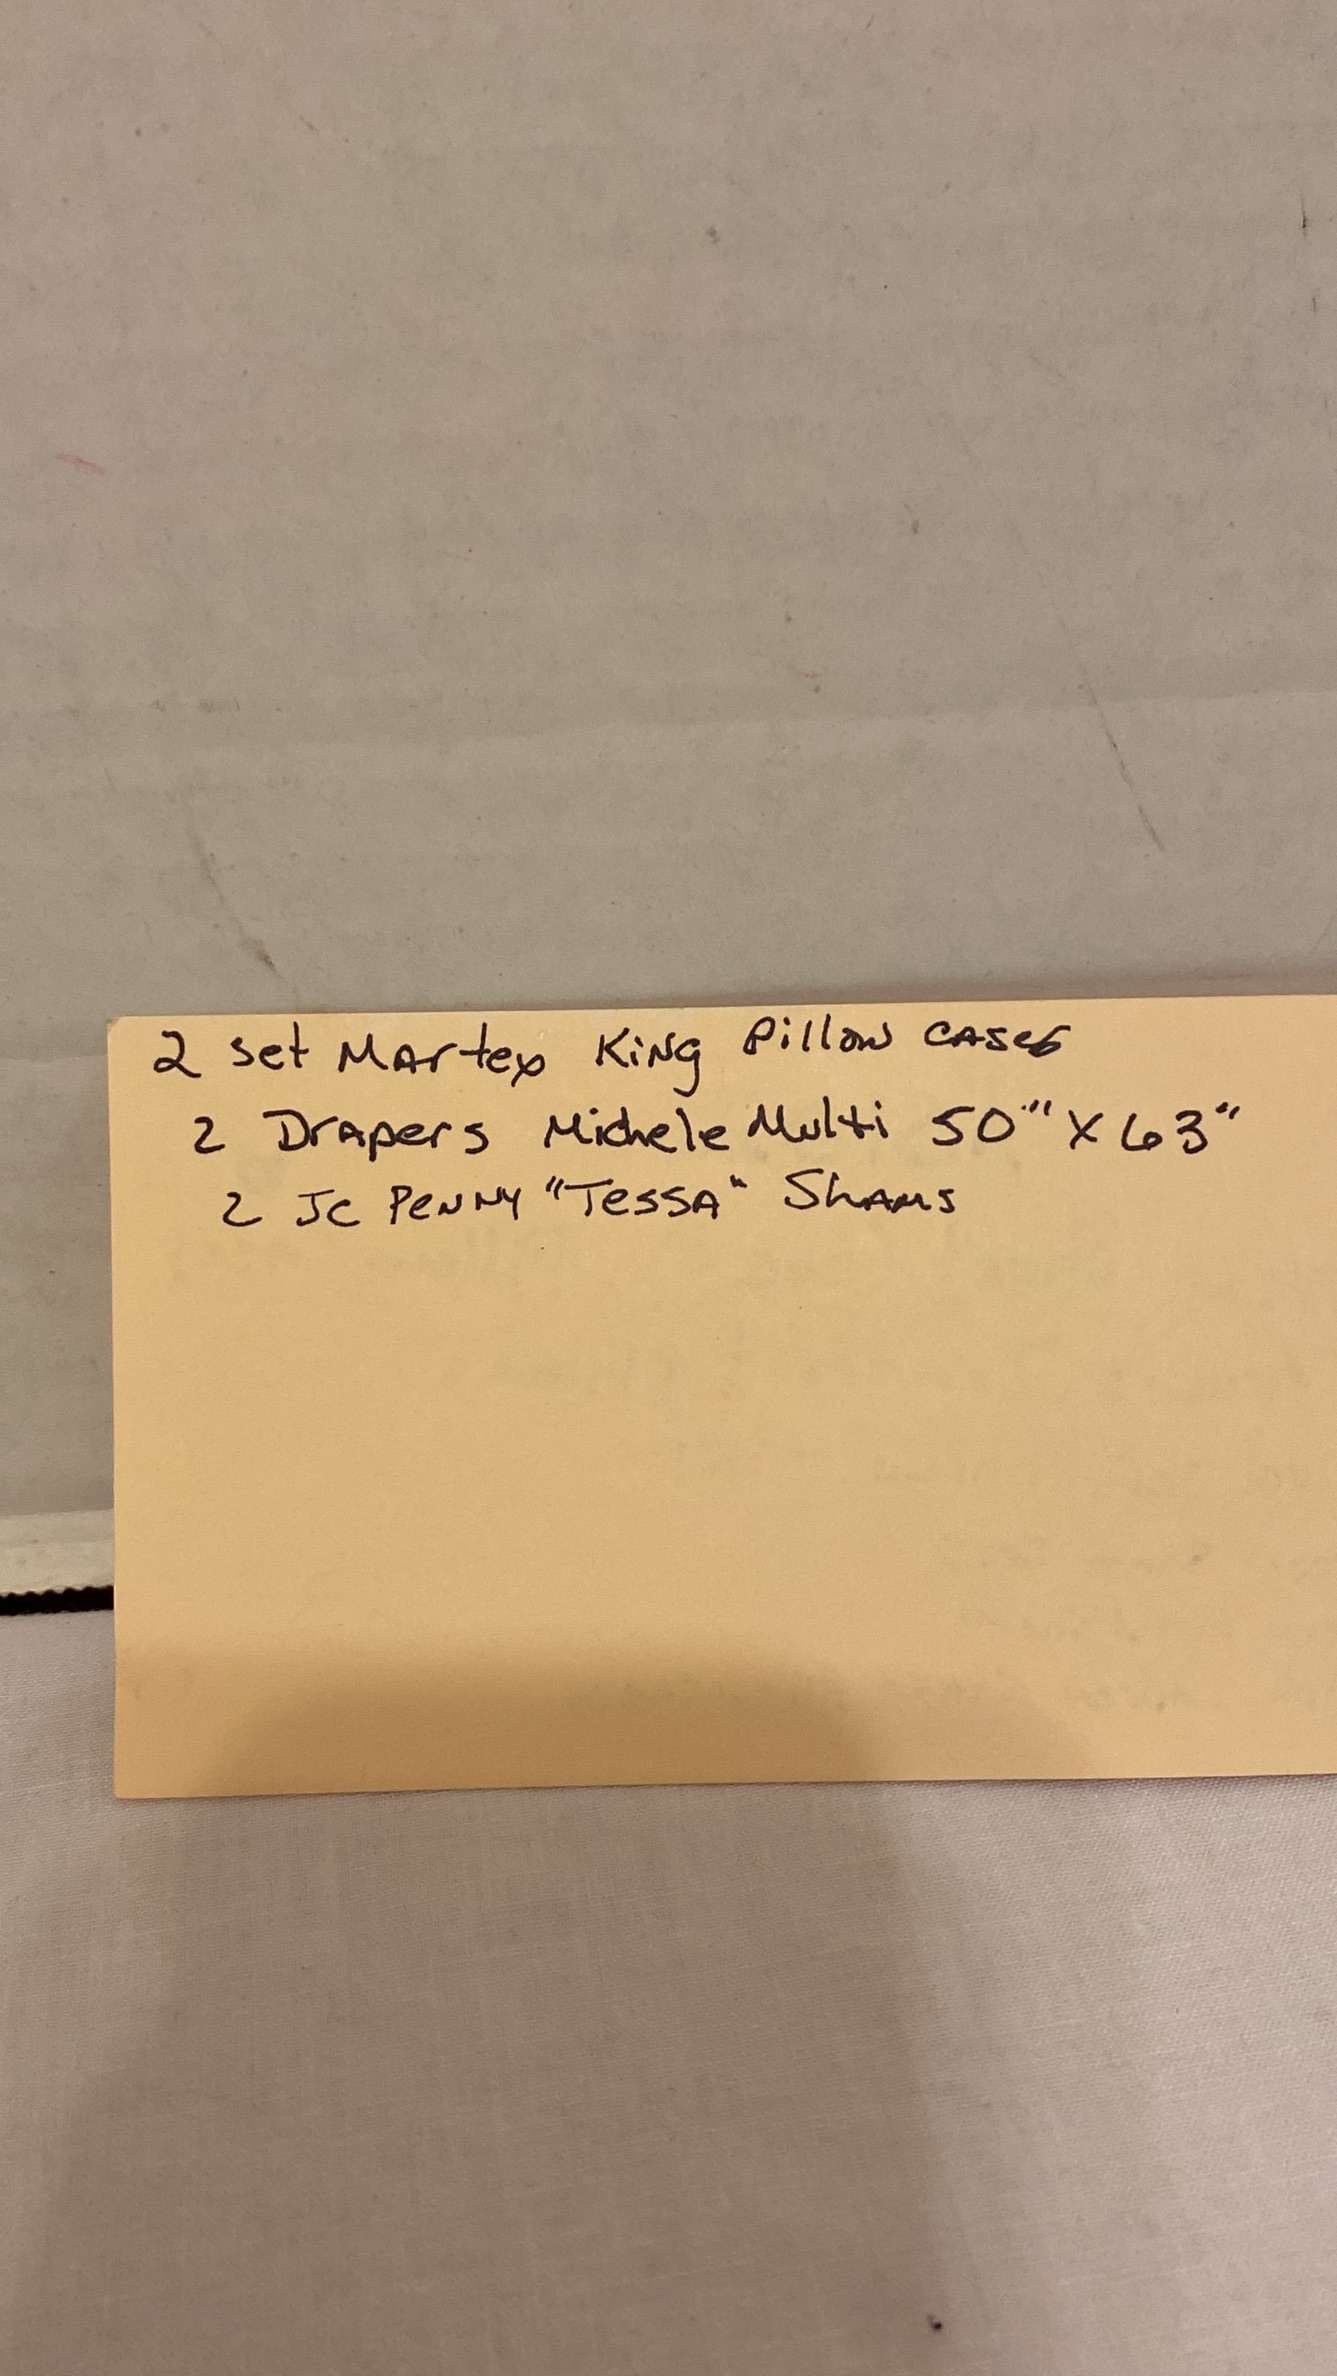 2 set Martex King Pillow cases
2 Drapers Michele Multi 50" X 63"
2 JC Penny "Tessa" Shams